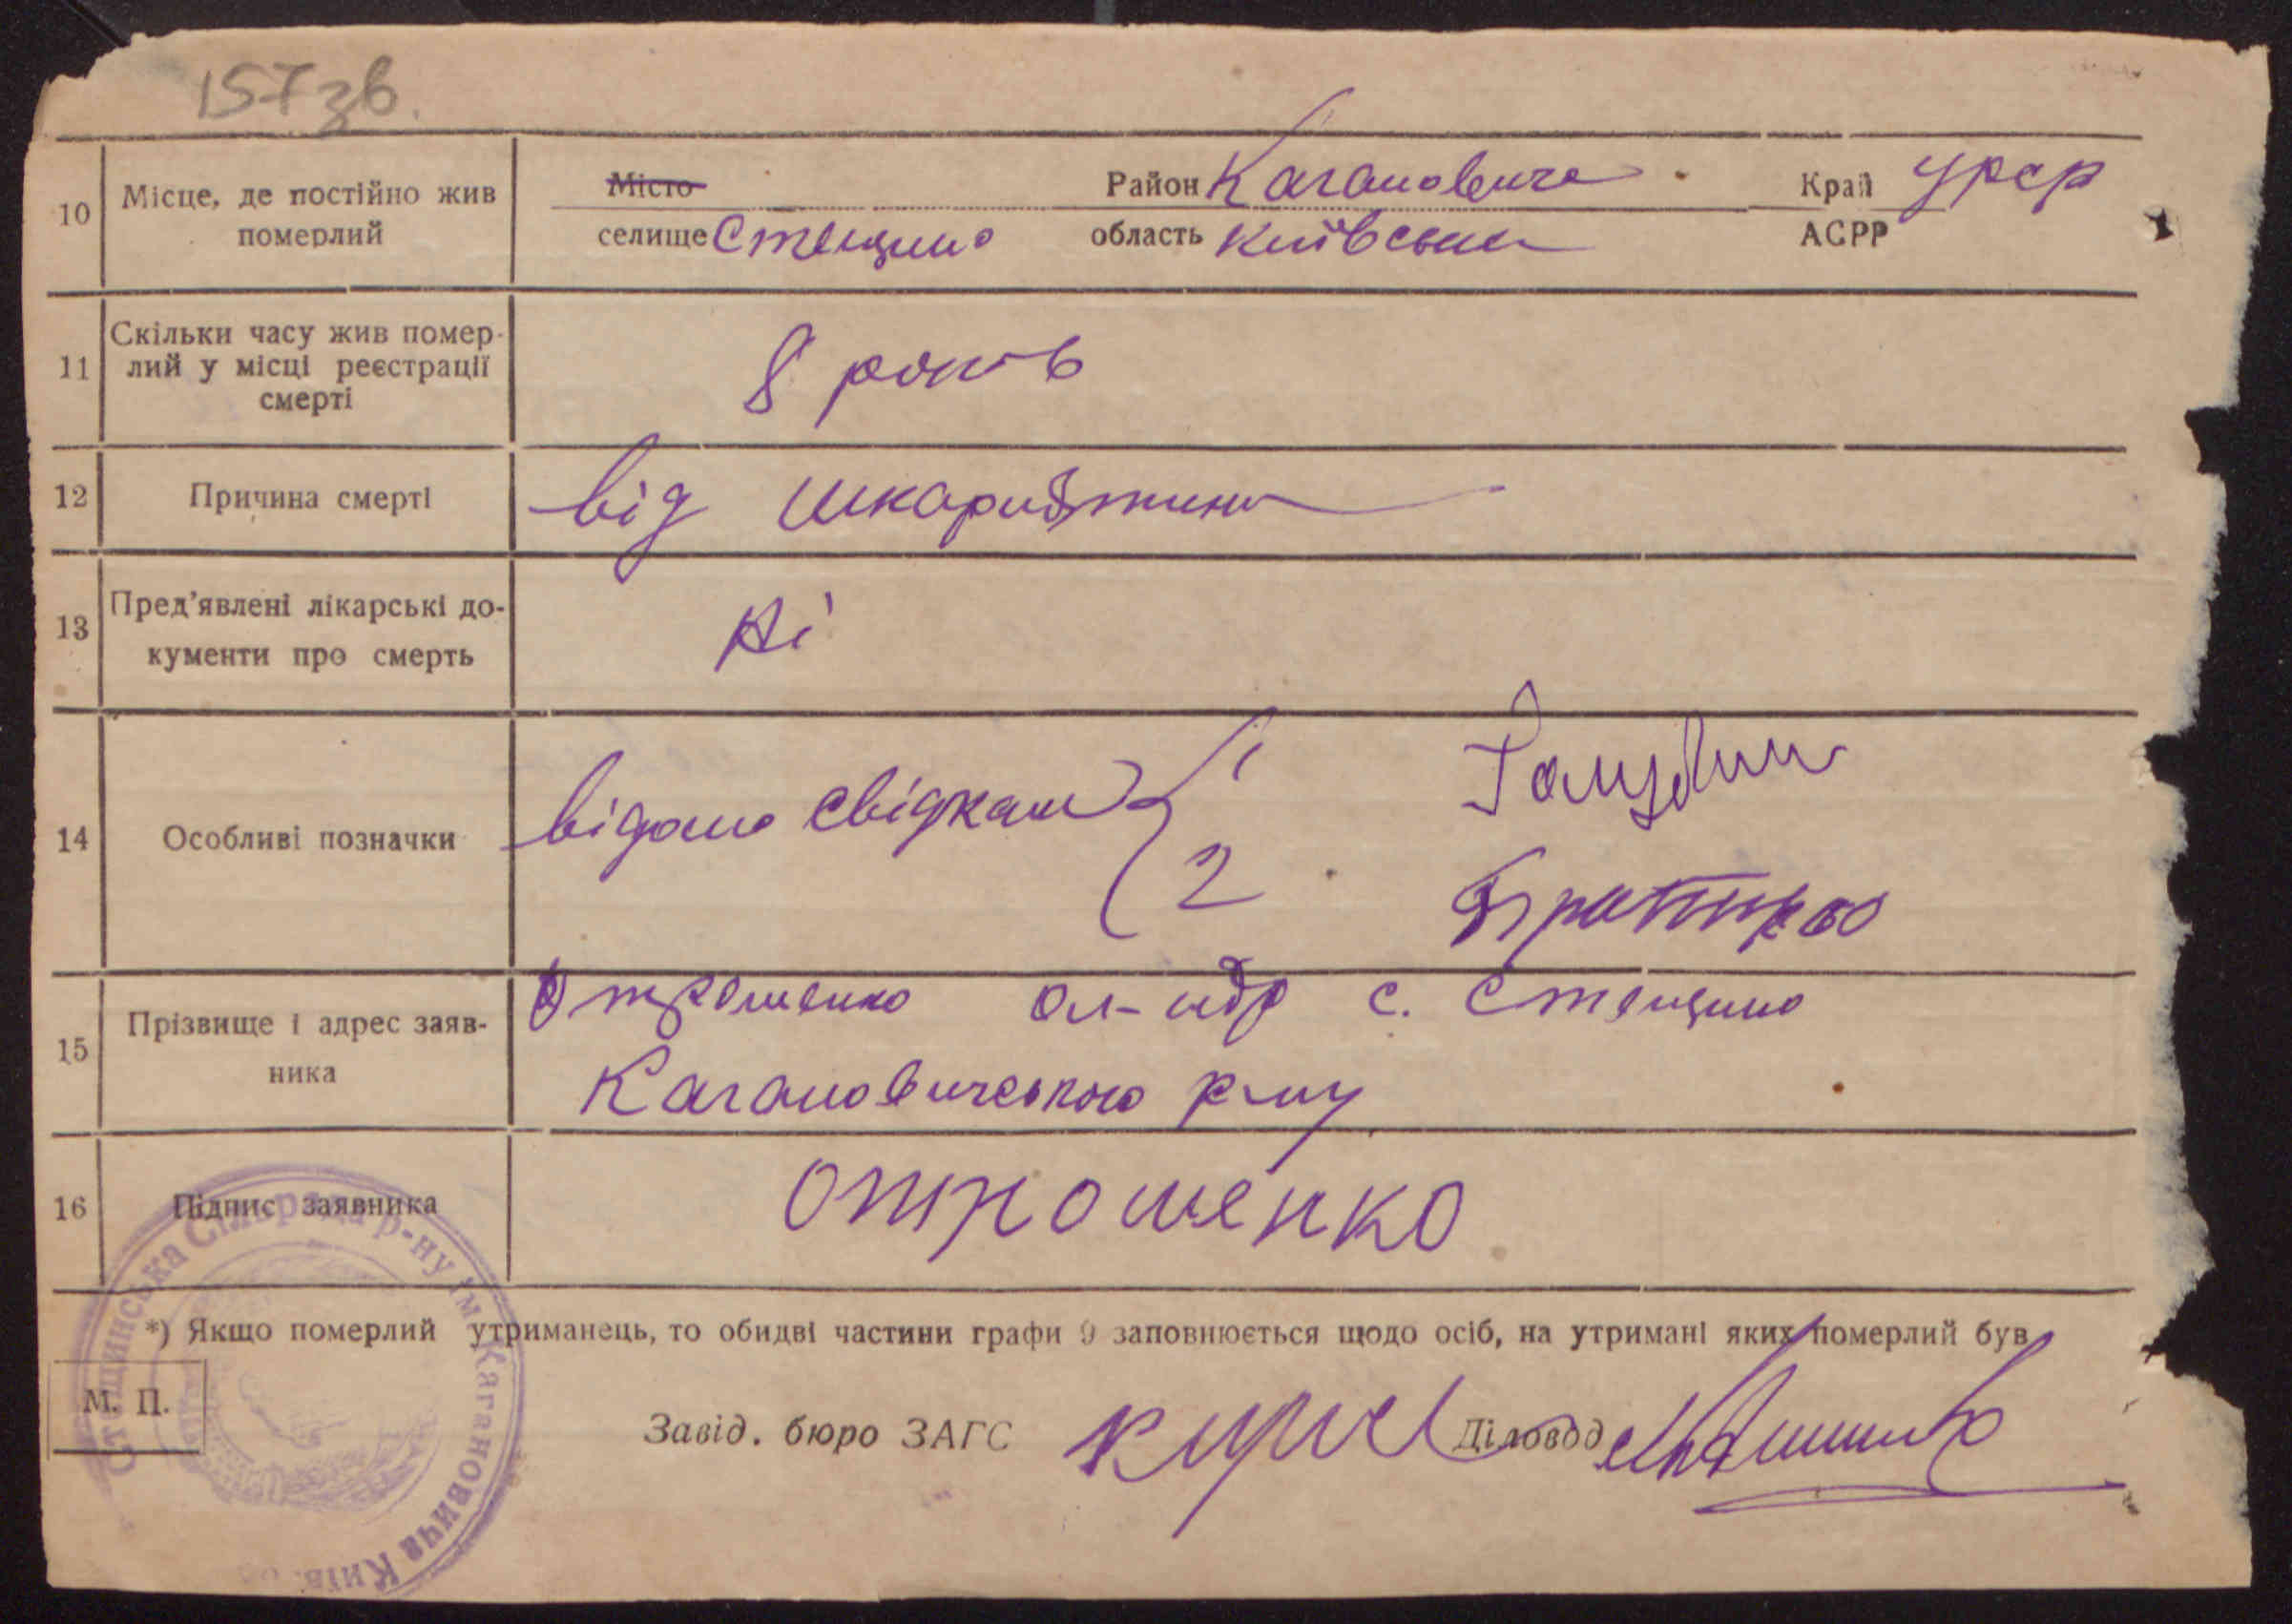 157 зв.
10 Місце, де постійно жив померлий
Місто Район Кагановича Край УРСР
селище Стещина область Київська АСРР
11 Скільки часу жив помер-
лий у місці реєстрації
смерті
8 років
12 Причина смерті від шкарлятини
13 Пред'явлені лікарські до-
кументи про смерть
Ні
14 Особливі позначки
відомо свідкам 1
2
15 Прізвище і адрес заяв-
ника
Отрошенко Ол-ндр с. Стещина
Кагановичського р-ну
16 Підпис заявника Отрошенко
*) Якщо померлий утриманець, то обидві частини графи 9 заповнюється щодо осіб, на утримані яких померлий був
М. П.
Завід. бюро ЗАГС Діловод
Стещинська Сільрада р-ну ім. Кагановича Київ.